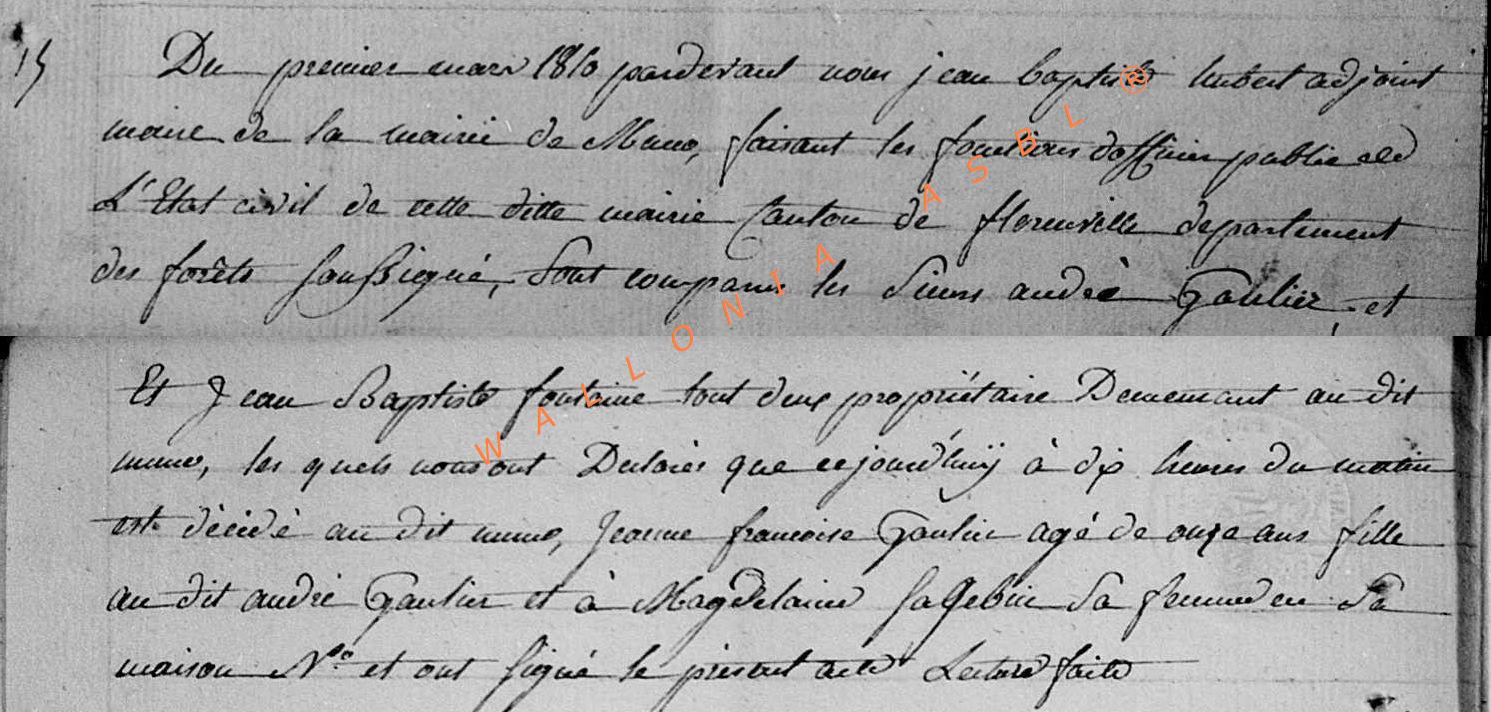 15 Du premier mars 1810 pardevant nous jean baptiste hubert adjoint
maire de la mairie de Muno, faisant les fonctions dofficier public de
L'Etat civil de cette ditte mairie Canton de florenville departement
des forêts soussigné, Sont comparus les Sieurs andré Gaulier et
Et Jean Baptiste fontaine tout deux propriétaire Demeurant au dit
muno, les quels nous ont Declarés que cejourd'huij à dix heures du matin
est décédé au dit muno, Jeanne francoise Gaulier agé de onze ans fille
au dit andré Gaulier et à Magdelaine sa femme en Sa
maison N° et ont signé le présent acte Lecture faite
WALLONIA ASBL ®